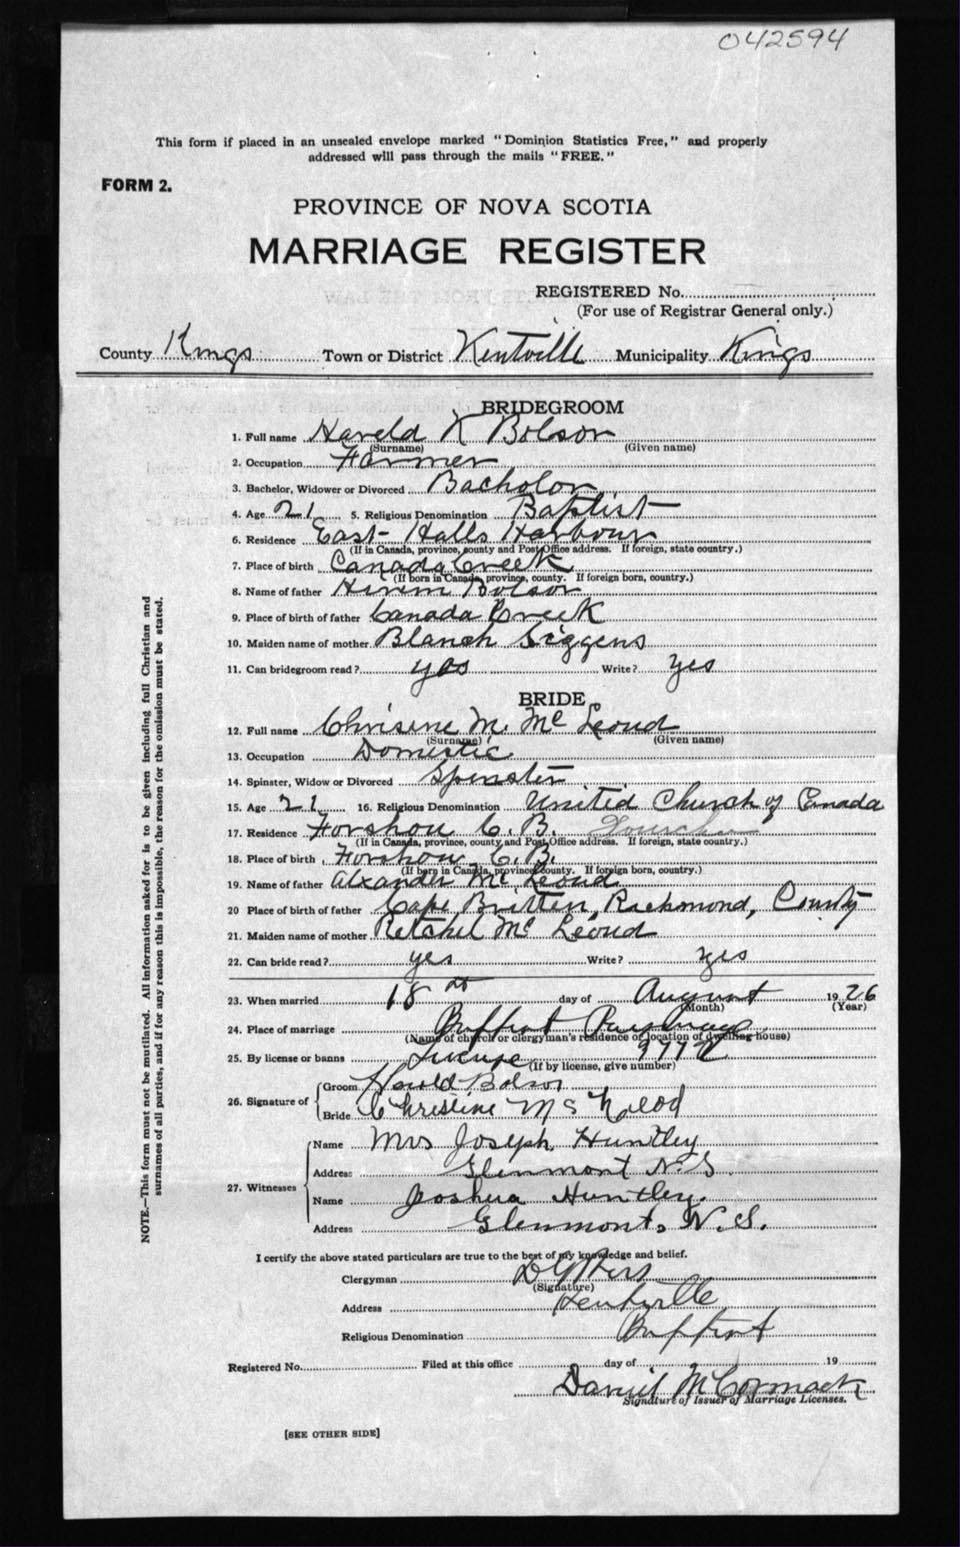 042594
This form if placed in an unsealed envelope marked "Dominion Statistics Free," and properly
addressed will pass through the mails "FREE."
FORM 2.
PROVINCE OF NOVA SCOTIA
MARRIAGE REGISTER
REGISTERED No.
(For use of Registrar General only.)
County Kings Town or District Kentville Municipality Kings
BRIDEGROOM
1. Full name Harold K Bolson
(Surname) (Given name)
2. Occupation Farmer
3. Bachelor, Widower or Divorced Bacholor
4. Age 21 5. Religious Denomination Baptist
6. Residence East Halls Harbour
(If in Canada, province, county and Post Office address. If foreign, state country.)
7. Place of birth Canada Creek
(If born in Canada, province, county. If foreign born, country.)
8. Name of father Hirem Bolson
9. Place of birth of father Canada Creek
10. Maiden name of mother Blanch Siggens
11. Can bridegroom read? yes Write? yes
BRIDE
12. Full name Chrisene M. Mc Leoud
(Surname) (Given name)
13. Occupation Domestic
14. Spinster, Widow or Divorced Spenster
15. Age 21 16. Religious Denomination United Church of Canada
17. Residence Forshou C.B.
(If in Canada, province, county and Post Office address. If foreign, state country.)
18. Place of birth Forshou C.B.
(If born in Canada, province county. If foreign born, country.)
19. Name of father Alxander Mc Leoud
20 Place of birth of father Cape Britten, Richmond, County
21. Maiden name of mother Retchel Mc Leoud
22. Can bride read? yes Write? yes
23. When married 18th day of August 1926
(Month) (Year)
24. Place of marriage Baptist Parsonage
(Name of church or clergyman's residence or location of dwelling house)
25. By license or banns License 9772
(If by license, give number)
26. Signature of Groom Harold Bolson
Bride Christine McNleod
27. Witnesses Name Mrs Joseph Huntley
Address Glenmont N.S.
Name Joshua Huntley.
Address Glenmont, N.S.
I certify the above stated particulars are true to the best of my knowledge and belief.
Clergyman
(Signature)
Address Kentville
Religious Denomination Baptist
Registered No. Filed at this office day of 19
Daniel McCormack
Signature of Issuer of Marriage Licenses.
[SEE OTHER SIDE]
NOTE.—This form must not be mutilated. All information asked for is to be given including full Christian and
surnames of all parties, and if for any reason this is impossible, the reason for the omission must be stated.